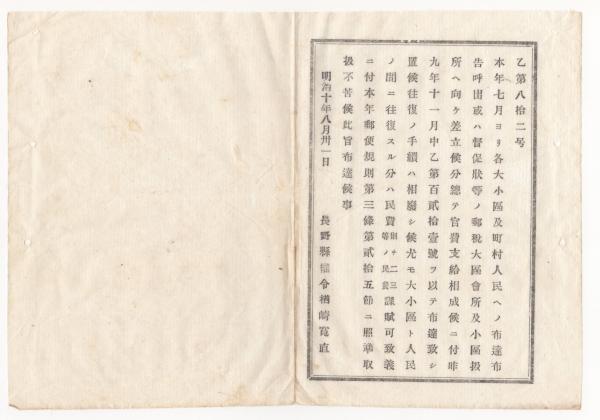 乙第八拾二号
本年七月ヨリ各大小區及町村人民ヘノ布達布
告呼出或ハ督促狀等ノ郵稅大區會所及小區扱
所ヘ向ケ差立候分總テ官費支給相成候ニ付昨
九年十一月中乙第百貳拾壹號ヲ以テ布達致シ
置候往復ノ手續ハ相廢シ候尤モ大小區ト人民
ノ間ニ往復スル分ハ民費 等ノ民費 課賦可致義
ニ付本年郵便規則第三條第貳拾五節ニ照準取
扱不苦候此旨布達候事
明治十年八月卅一日
長野縣權令楢崎寬直